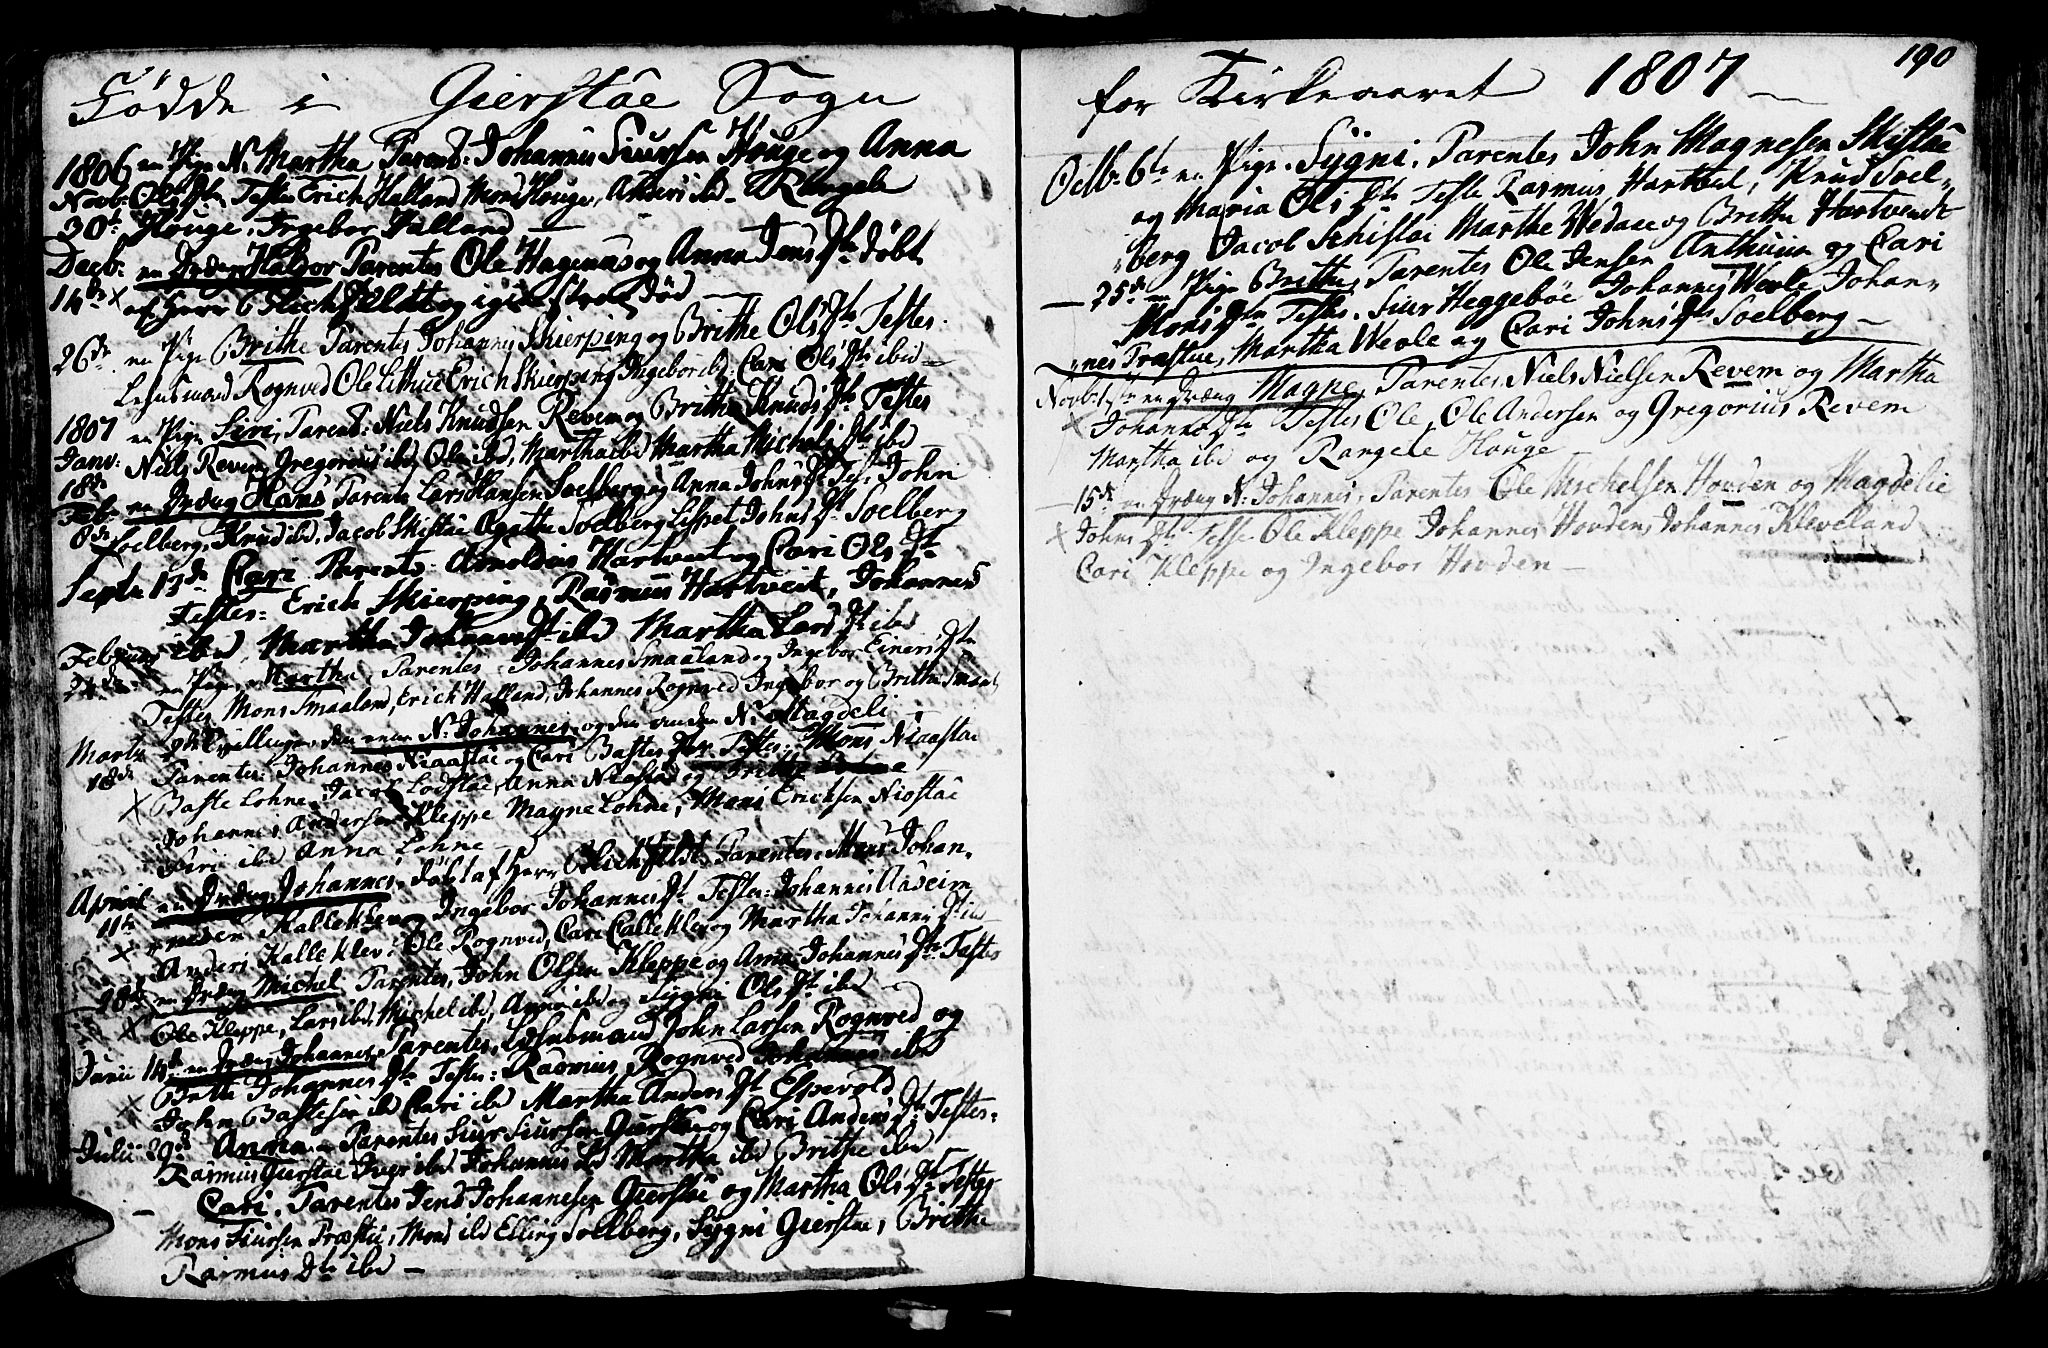 Fødde i Gierståe Sogn
1806 en Pige N. Martha Parent: Johannes Siursen Houge og Anna
Novb: Ols Dtr Testes Erich Halland Mons Houge, Anders ibd Rangele
30te Houge, Ingebor Halland
Decb: en Dreng Halvor Parentes Ole Hagenus og Anna Jens Dtr døbt
14de af Herr Blichfeldt og igien strax død
26de en Pige Brithe Parentes Johannes Skierping og Brithe Ols Dtr Testes
Lehnsmand Rognved Ole Lithue Erich Skierping Ingebor ibd: Cari Ols Dtr ibid
1807 en Pige Siri, Parent: Niels Knudsen Revem og Britha Knuds Dtr Testes
Janv: Niels Revem Gregorius ibd Ole ibd, Martha ibd Martha Michels Dtr ibd
18de
Febr en Dreng Hans, Parente Lars Hansen Soelberg og Anna Johns Dt Tes: John
8de Soelberg, Knud ibd, Jacob Skiståe Agatha Soelberg Lispet Johns Dt Soelberg
Septr 13de Cari Parents Arnoldus Hartveit og Cari Ols Dtr
Testes: Erich Skierping, Rasmus Hartveit, Johannes
ibd, Martha Johannes Dt ibd Martha Lars Dt ibd
Februar
24de en Pige Martha, Parentes Johannes Smaaland og Ingebor Einers Dtr
Testes Mons Smaaland, Erich Halland, Johannes Rognved Ingebor og Britha Smaal
Martii Tvillinger, den eene N. Johannes, og den anden N. Magdeli
18de Parentes: Johannes Niaaståe og Cari Bastes Dtr Testes: Mons Niaaståe
Baste Lohne, Jacob Lodståe, Anna Niaståe og Britha
Johannes Andersen Kleppe Magne Lohne, Mari Ericksen Niostäe
Siri ibd Anna Lohne
April en Dreng Johannes, døbt af Herr Blichfeldt, Parentes: Mons Johan,
11te nesen Kalleklev og Ingebor Johannes Dt Testes: Johannes
Anders Kalleklev, Ole Rognved, Cari Calleklev og Martha Johannes Dt ibd
28de en Dreng Michel Parentes, John Olsen Kleppe og Anna Johannes Dtr Testes
Ole Kleppe, Lars ibd, Michel ibd, Anna ibd og Sygni Ols Dt ibd
Junii 14de en Dreng Johannes, Parentes, Lehnsmand John Larsen Rognved og
Brithe Johannes Dtr Testes: Rasmus Rognved Johannes ibd
John Bastesen ibd Cari ibd Martha Anders Dt Espevold
Julii 29de Anna Parentes Siur Siursen Gierståe og Cari Anders Dtr Testes:
Rasmus Gierståe Iver ibd Johannes ibd Martha ibd Brithe ibd
Cari, Parentes Jens Johannesen Gierståe og Martha Ols Dt Testes
Mons Siursen Præstii, Mons ibd Elling Soelberg, Sygni Gierståe, Brithe
Rasmus Dtr ibd
190
for Kirkeaaret 1807
Octb: 6te en Pige Sygni, Parentes John Magnesen Skistäe
og Maria Ols Dtr Teste Rasmus Hartvet, Knud Soel-
berg Jacob Schistai Marthe Wedaae og Britha Hartvendt
25de en Pige Brithe, Parentes Ole Jensen Anthuun og Cari
Mons Dtr Testes. Siur Heggebøe Johannes Wevle Johan-
nes Træstue, Martha Wevle og Cari Johns Dt Soelberg
Novbr 1ste en Dreng Magne, Parentes Niels Nielsen Revem og Martha
Johannes Dtr Testes Ole, Ole Andersen og Gregorius Revem
Martha ibd og Rangele Houge
15de en Dreng N. Johannes, Parentes Ole Michelsen Hovden og Magdelie
Johns Dtr Teste Ole Kleppe Johannes Hovden, Johannes Kleveland
Cari Kleppe og Ingebor Hovden